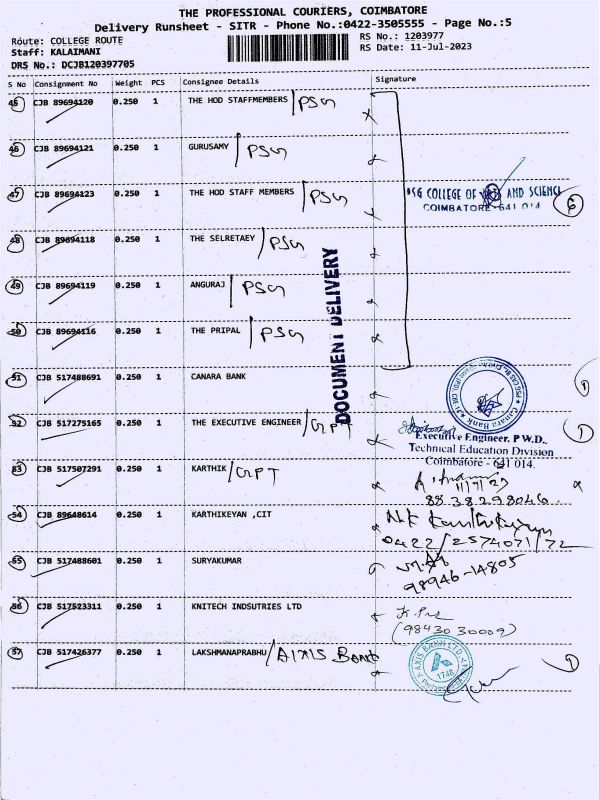 THE PROFESSIONAL COURIERS, COIMBATORE
Delivery Runsheet - SITR - Phone No.:0422-3505555 - Page No.:5
Route: COLLEGE ROUTE RS No.: 1203977
Staff: KALAIMANI RS Date: 11-Jul-2023
DRS No.: DCJB120397705
S No Consignment No Weight PCS Consignee Details Signature
45 CJB 89694120 0.250 1 THE HOD STAFFMEMBERS /PSG
46 CJB 89694121 0.250 1 GURUSAMY /PSG
47 CJB 89694123 0.250 1 THE HOD STAFF MEMBERS /PSG
PSG COLLEGE OF ARTS AND SCIENCE 6
COIMBATORE - 641 014
48 CJB 89694118 0.250 1 THE SELRETAEY /PSG
49 CJB 89694119 0.250 1 ANGURAJ /PSG
50 CJB 89694116 0.250 1 THE PRIPAL /PSG
DOCUMENT DELIVERY
51 CJB 517488691 0.250 1 CANARA BANK 1
Canara Bank
52 CJB 517275165 0.250 1 THE EXECUTIVE ENGINEER /GPT 1
Executive Engineer, P.W.D.,
Technical Education Division
Coimbatore - 641 014.
53 CJB 517507291 0.250 1 KARTHIK /GPT
11/7/23
8838298046
54 CJB 89648614 0.250 1 KARTHIKEYAN ,CIT
0422/2574071/72
55 CJB 517488601 0.250 1 SURYAKUMAR
98946-14805
56 CJB 517523311 0.250 1 KNITECH INDSUTRIES LTD
(98430 30009)
57 CJB 517426377 0.250 1 LAKSHMANAPRABHU /AIXIS BANK 1
AXIS BANK LTD.
1748